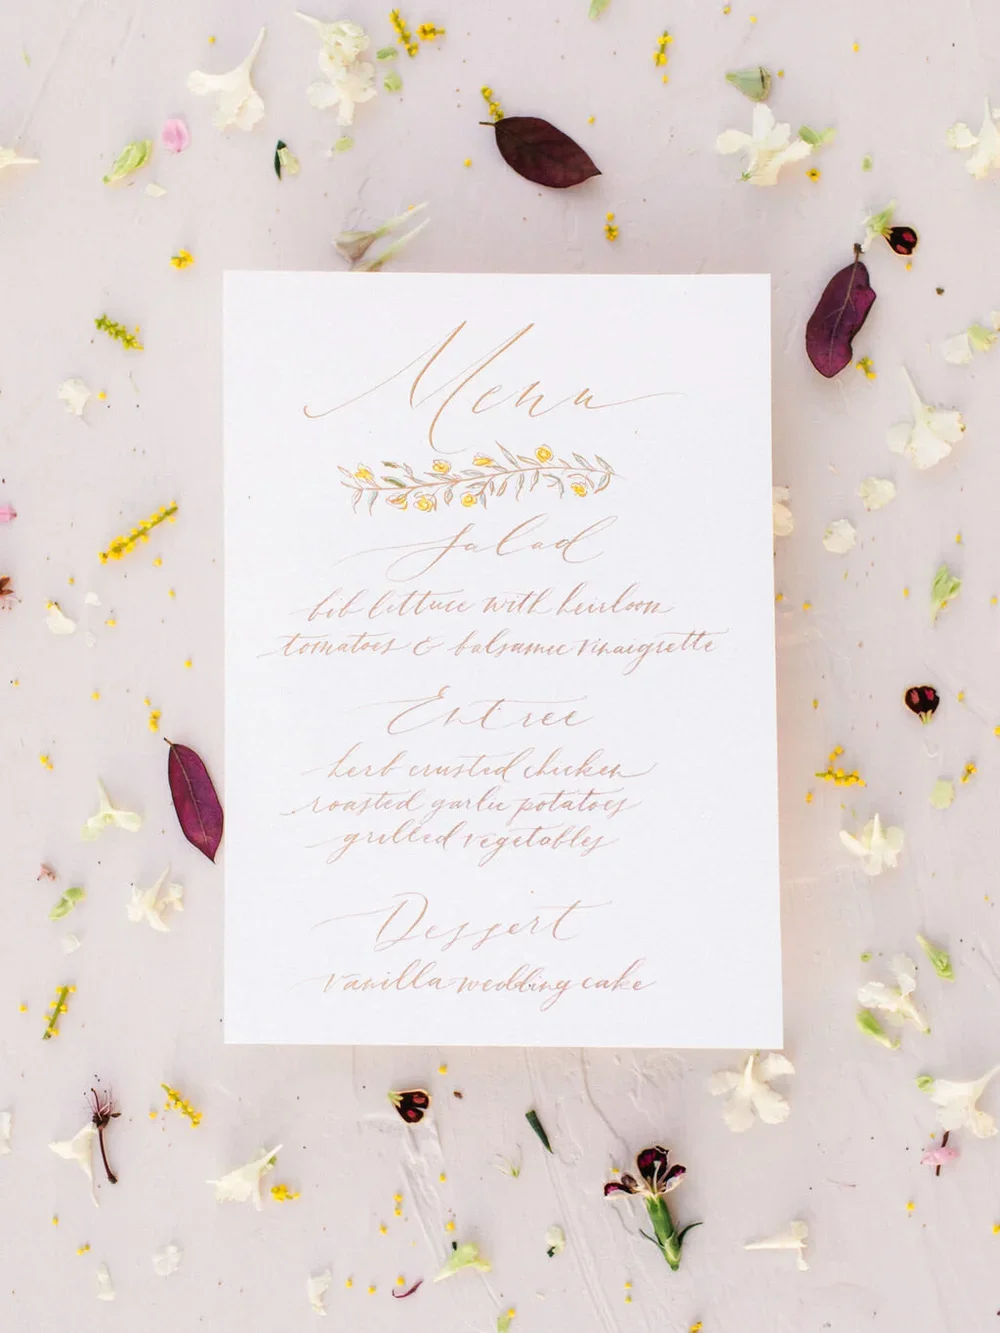 Menu
Salad
bib lettuce with heirloom
tomatoes & balsamic vinaigrette
Entree
herb crusted chicken
roasted garlic potatoes
grilled vegetables
Dessert
vanilla wedding cake